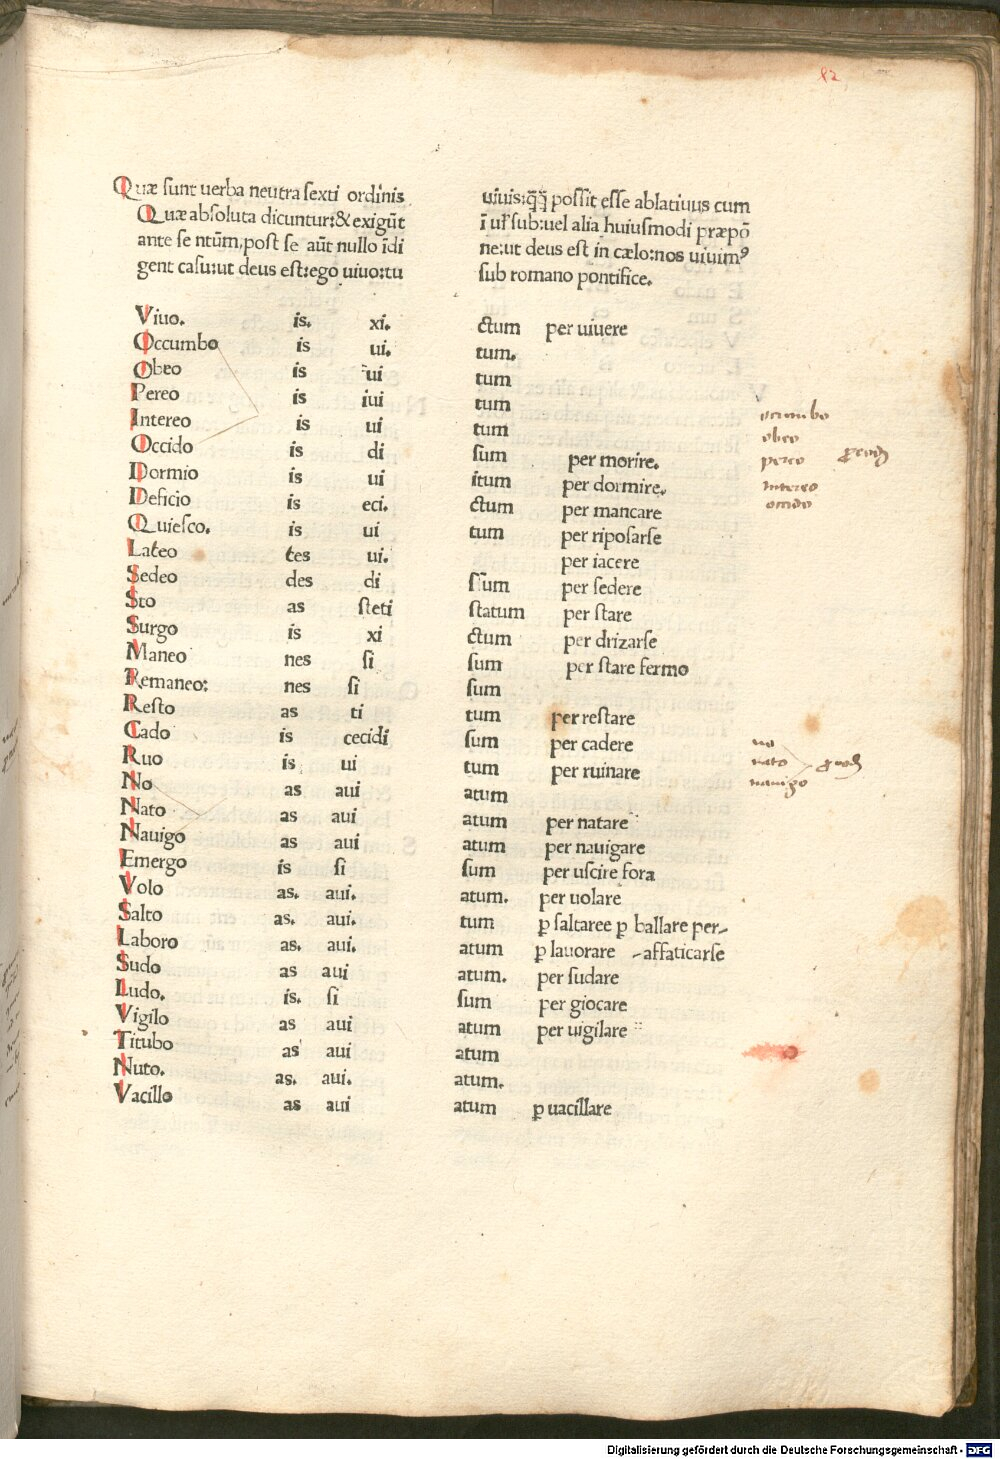 82
Quæ sunt uerba neutra sexti ordinis
Quæ absoluta dicuntur:& exigūt
ante se ntūm, post se aūt nullo īdi
gent casu:ut deus est:ego uiuo:tu
uiuis:q̄q̄ possit esse ablatiuus cum
ī ul' sub:uel alia huiusmodi præpō
ne:ut deus est in cælo:nos uiuimꝰ
sub romano pontifice.
Viuo. is. xi. ctum per uiuere
Occumbo is ui. tum.
Obeo is ui tum
Pereo is iui tum
Intereo is ui tum
Occido is di sum per morire.
Dormio is ui itum per dormire.
Deficio is eci. ctum per mancare
Quiesco. is ui tum per riposarse
Lateo tes ui. per iacere
Sedeo des di ssum per sedere
Sto as steti statum per stare
Surgo is xi ctum per drizarse
Maneo nes si sum per stare fermo
Remaneo: nes si sum
Resto as ti tum per restare
Cado is cecidi sum per cadere
Ruo is ui tum per ruinare
No as aui atum
Nato as aui atum per natare
Nauigo as aui atum per nauigare
Emergo is si sum per uscire fora
Volo as. aui. atum. per uolare
Salto as. aui. tum ꝑ saltaree ꝑ ballare per-
Laboro as. aui. atum ꝑ lauorare -affaticarse
Sudo as aui atum. per sudare
Ludo. is. si sum per giocare
Vigilo as aui atum per uigilare
Titubo as aui atum
Nuto. as. aui. atum.
Vacillo as aui atum ꝑ uacillare
occumbo
obeo
pereo
intereo
occido
no
nato
nauigo
Digitalisierung gefördert durch die Deutsche Forschungsgemeinschaft - DFG